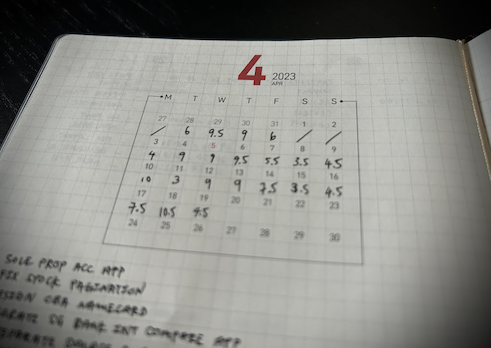 4 2023
APR
M T W T F S S
27 28 29 30 31 1 2
/ 6 9.5 9 6 / /
3 4 5 6 7 8 9
4 9 9 9.5 5.5 3.5 4.5
10 11 12 13 14 15 16
10 3 9 9 7.5 3.5 4.5
17 18 19 20 21 22 23
7.5 10.5 4.5
24 25 26 27 28 29 30
SOLE PROP ACC APP
FIX STOCK PAGINATION
NAMECARD
SG BANK INT COMPARE APP